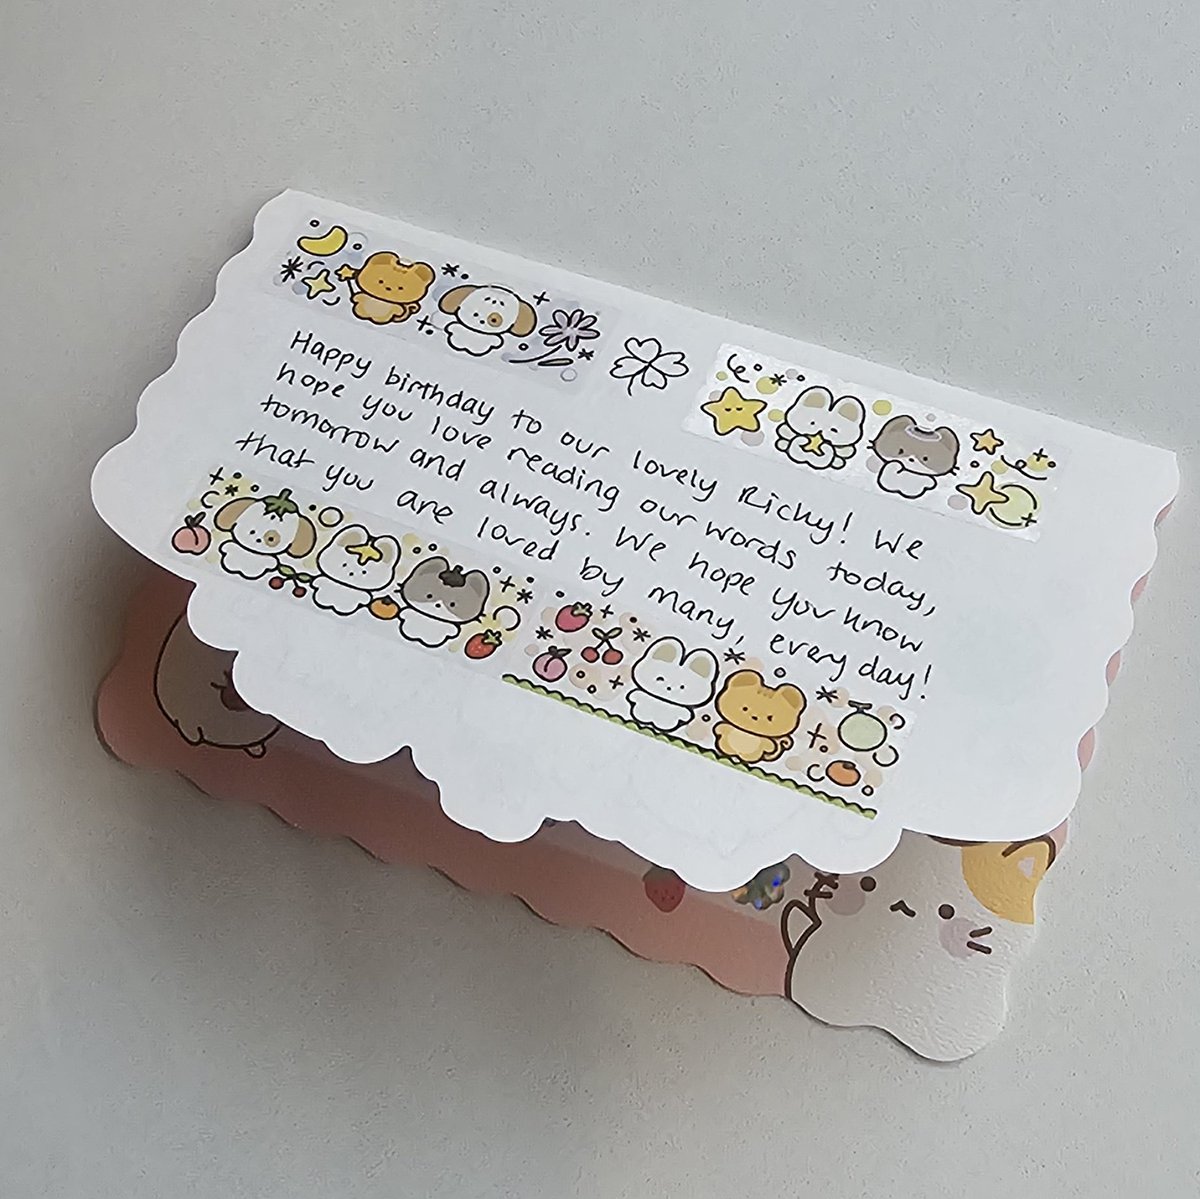 Happy birthday to our lovely Ricky! We
hope you love reading our words today,
tomorrow and always. We hope you know
that you are loved by many, every day!